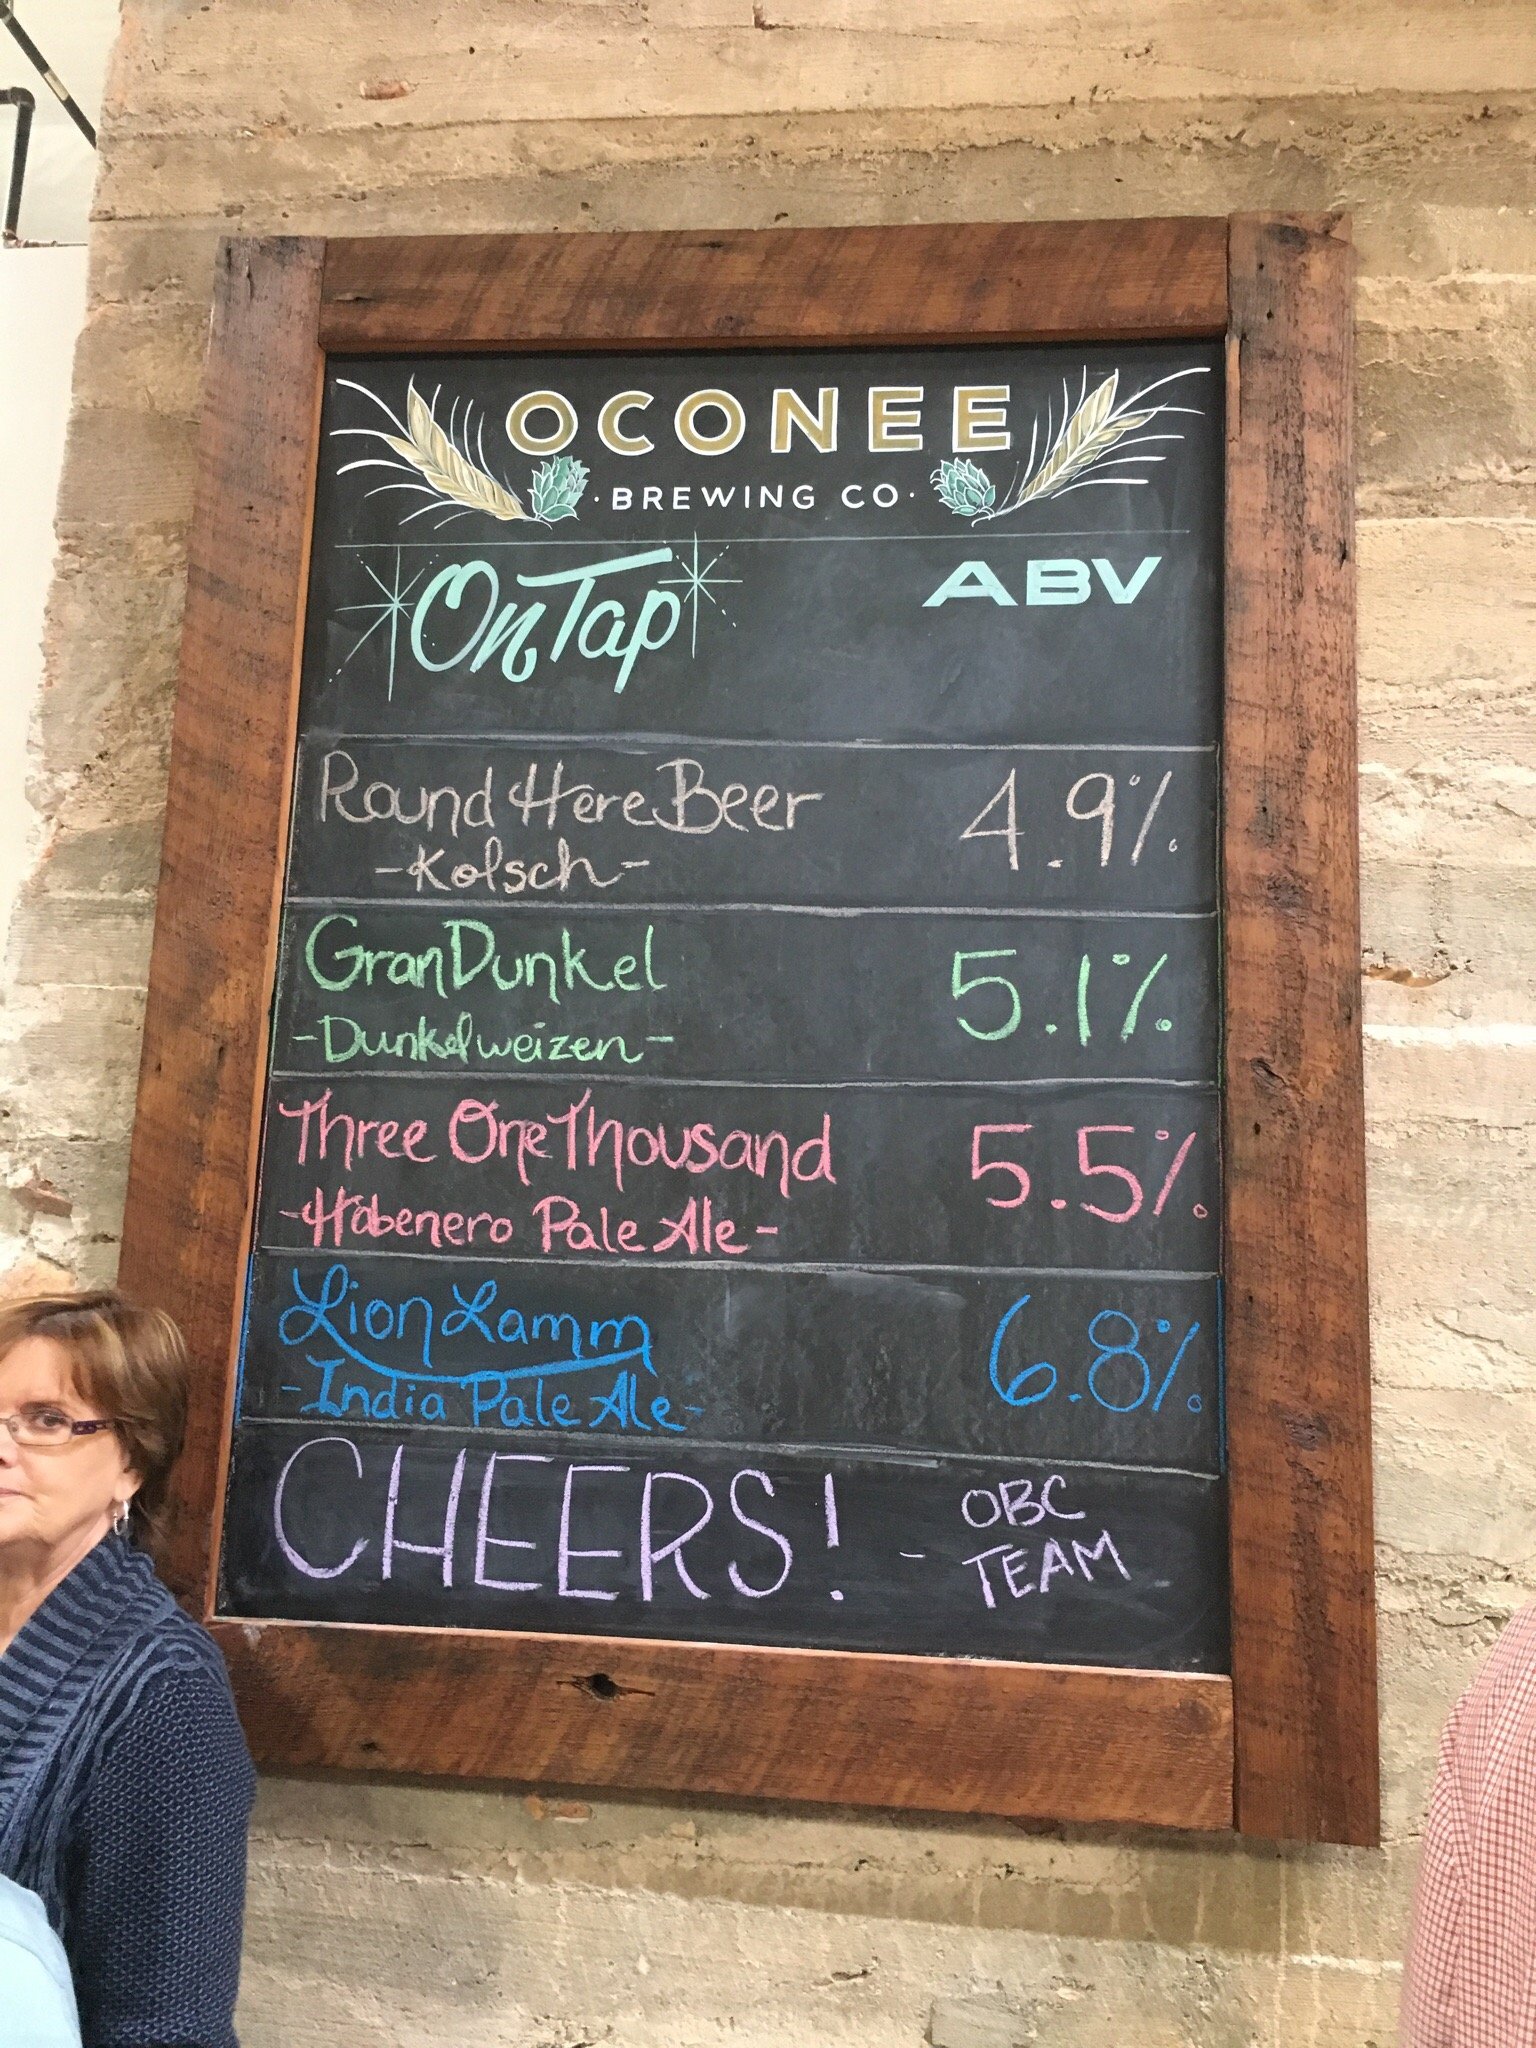 OCONEE
· BREWING CO ·
On Tap ABV
Round Here Beer 4.9%
- Kolsch -
GranDunkel 5.1%
- Dunkelweizen -
Three One Thousand 5.5%
- Habenero Pale Ale -
Lion Lamm 6.8%
- India Pale Ale -
CHEERS! - OBC
TEAM